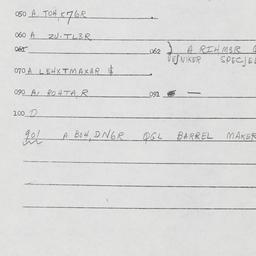 050 A. TOH,
060 A ZU.TL3R
061 062 A RIHM3R
SPECJEL
070 A LEHXTMAXAR $
090 A. ROHTA,R 091 —
100 D
901 A BOH,DNGR QSL BARREL MAKER